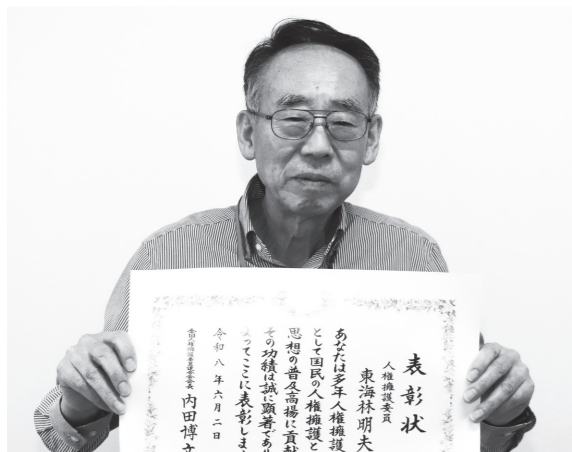 表彰状
人権擁護委員
東海林明夫
あなたは多年人権擁護
として国民の人権擁護と
思想の普及高揚に貢献
その功績は誠に顕著であり
よってここに表彰しま
令和八年六月二日
全国人権擁護委員連合会会長
内田博文